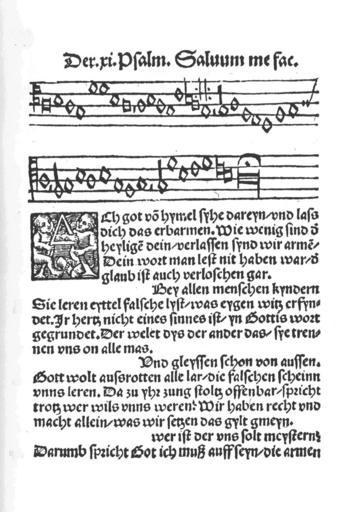 Der. xi. Psalm. Saluum me fac.
ACh got võ hymel syhe dareyn/vnd lass
dich das erbarmen. Wie wenig sind d̃
heylige dein/verlassen synd wir armẽ
Dein wort man lest nit haben war/d̃
glaub ist auch verloschen gar.
Bey allen menschen kyndern
Sie leren eyttel falsche lyst/was eygen witz erfyn-
det. Jr hertz nicht eines sinnes ist/yn Gottis wort
gegrundet. Der welet dys der ander das/sye tren-
nen vns on alle mas.
Vnd gleyssen schon von aussen.
Gott wolt ausrotten alle lar/die falschen scheinn
vnns leren. Da zu yhr zung stoltz offenbar/spricht
trotz wer wils vnns weren? Wir haben recht vnd
macht allein/was wir setzen das gylt gmeyn.
wer ist der vns solt meystern?
Darumb spricht Got ich muß auff seyn/die armen